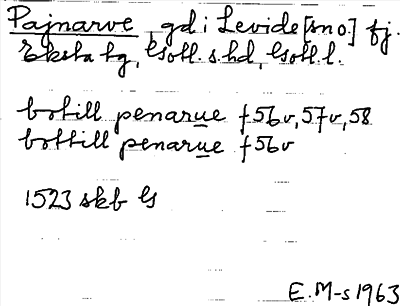 Pajnarve, gd i Levide [sno.] fj.
Eksta tg, Gotl. s. hd, Gotl. l.
botill penarue f56v, 57v, 58
bottill penarue f56v
1523 skb G
E.M-s 1963